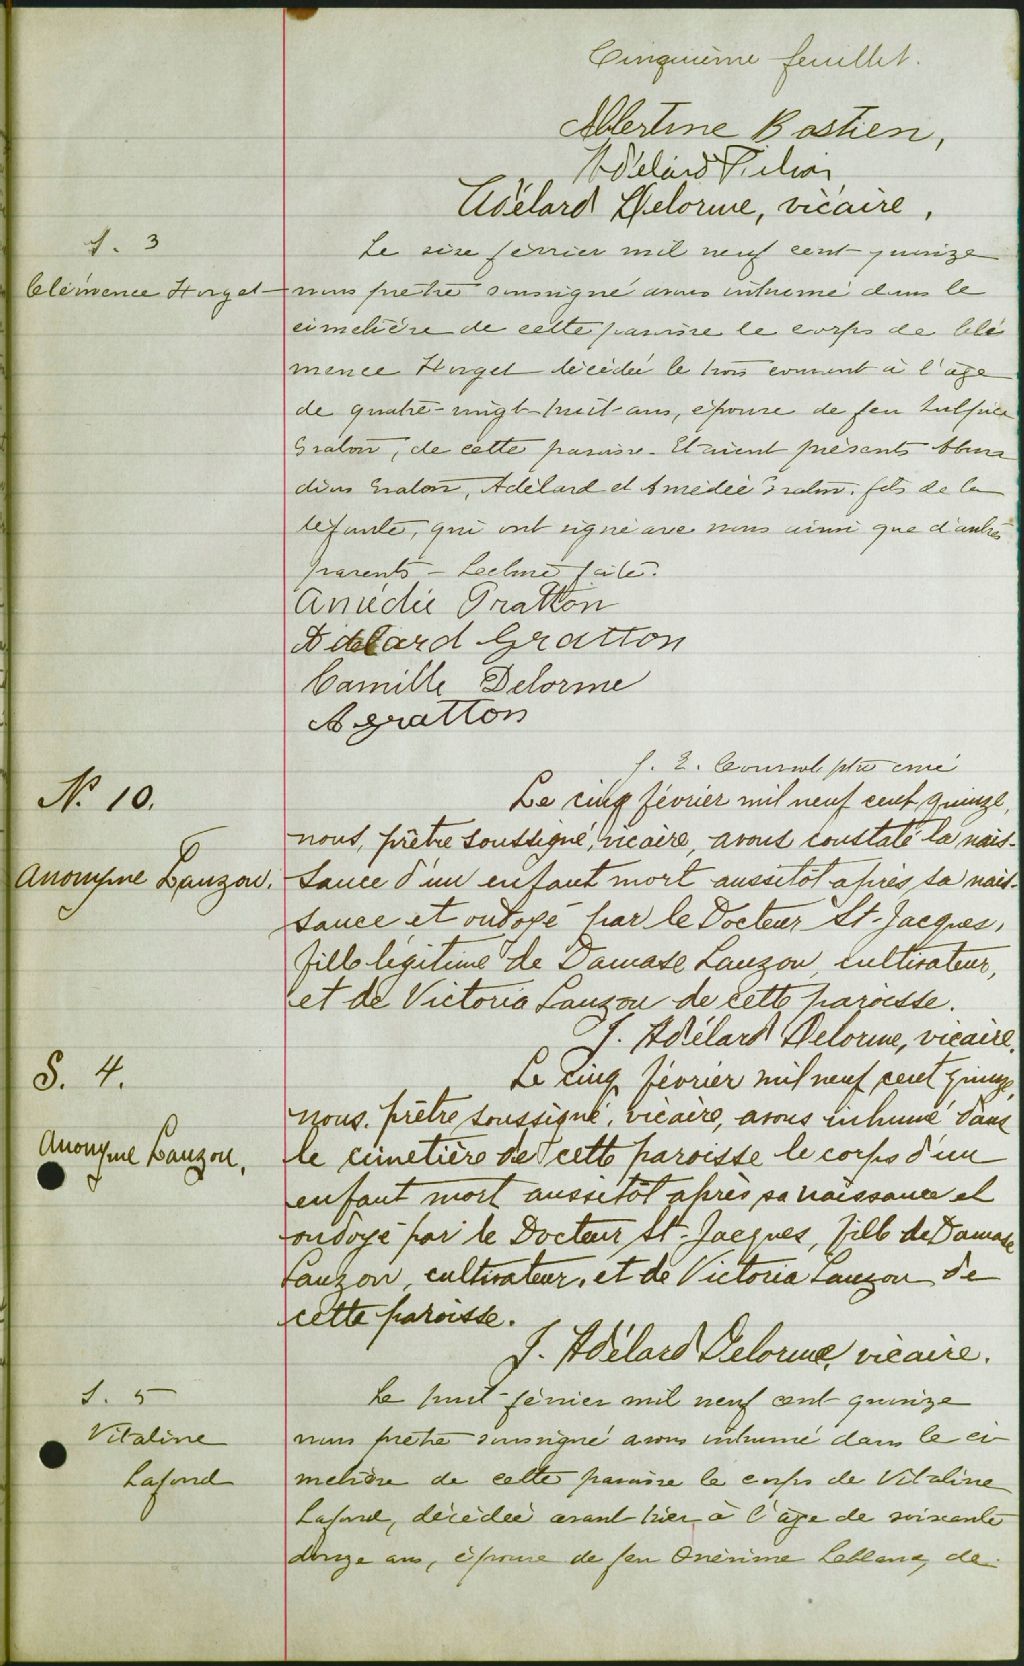 Cinquième feuillet.
Albertine Bastien,
Adélard Filion
Adélard Delorme, vicaire,
S. 3
Le six février mil neuf cent quinze
Clémence Forget
nous prêtre soussigné avons inhumé dans le
cimetière de cette paroisse le corps de Clé
mence Forget décédée le trois courant à l'âge
de quatre-vingt-huit-ans, épouse de feu Sulpice
Graton, de cette paroisse. Etaient présents
Graton, Adélard et Amédée Graton, fils de la
défunte, qui ont signé avec nous ainsi que d'autres
parents - Lecture faite.
Amédée Gratton
Adelard Gratton
Camille Delorme
A gratton
ptre curé
N. 10.
Le cinq février mil neuf cent quinze,
nous, prêtre soussigné, vicaire, avons constaté la nais-
Anonyme Lauzon.
sance d'un enfant mort aussitôt après sa nais-
sance et ondoyé par le Docteur St-Jacques,
fille légitime de Damase Lauzon, cultivateur,
et de Victoria Lauzon de cette paroisse.
J. Adélard Delorme, vicaire.
S. 4.
Le cinq février mil neuf cent quinze,
nous, prêtre soussigné, vicaire, avons inhumé dans
Anonyme Lauzon.
le cimetière de cette paroisse le corps d'un
enfant mort aussitôt après sa naissance et
ondoyé par le Docteur St-Jacques, fille de Damase
Lauzon, cultivateur, et de Victoria Lauzon de
cette paroisse.
J. Adélard Delorme, vicaire.
S. 5
Le huit février mil neuf cent quinze
Vitaline
nous prêtre soussigné avons inhumé dans le ci
Lafond
metière de cette paroisse le corps de Vitaline
Lafond, décédée avant hier à l'âge de soixante
douze ans, épouse de feu Onésime Leblanc, de